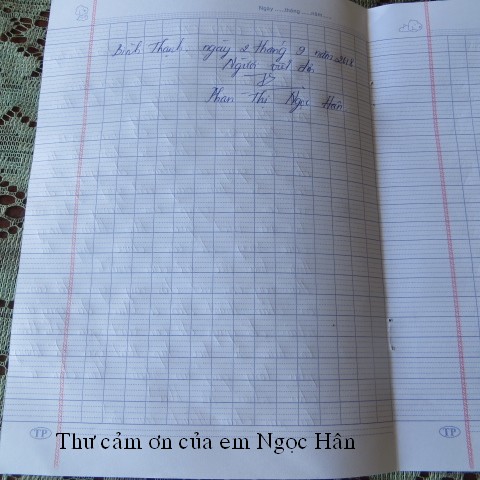 Ngày ..... tháng ..... năm.....
Bình Thạnh ngày 2 tháng 9 năm
Người viết đơn
Phan Thị Ngọc Hân
TP
TP
Thư cảm ơn của em Ngọc Hân